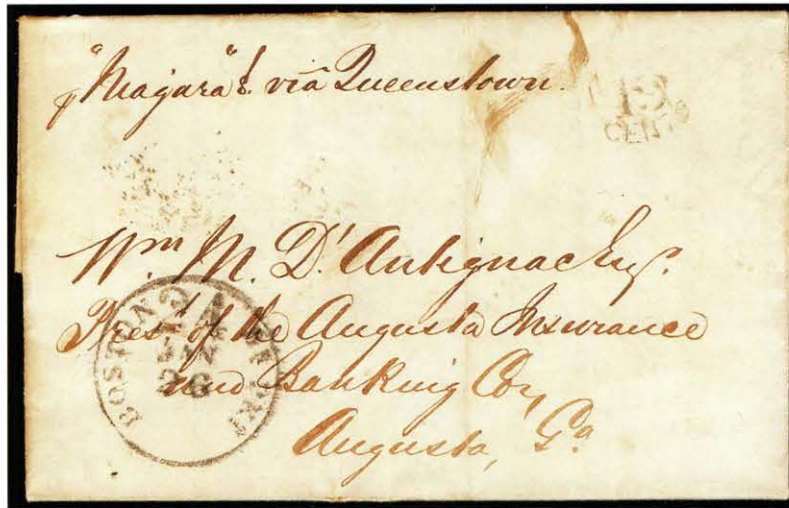 "Niagara" via Queenstown.
19
CENTS
Wm. M. D'Antignac Esq.
Prest of the Augusta Insurance
and Banking Coy
Augusta, Ga
BOSTON
PKT